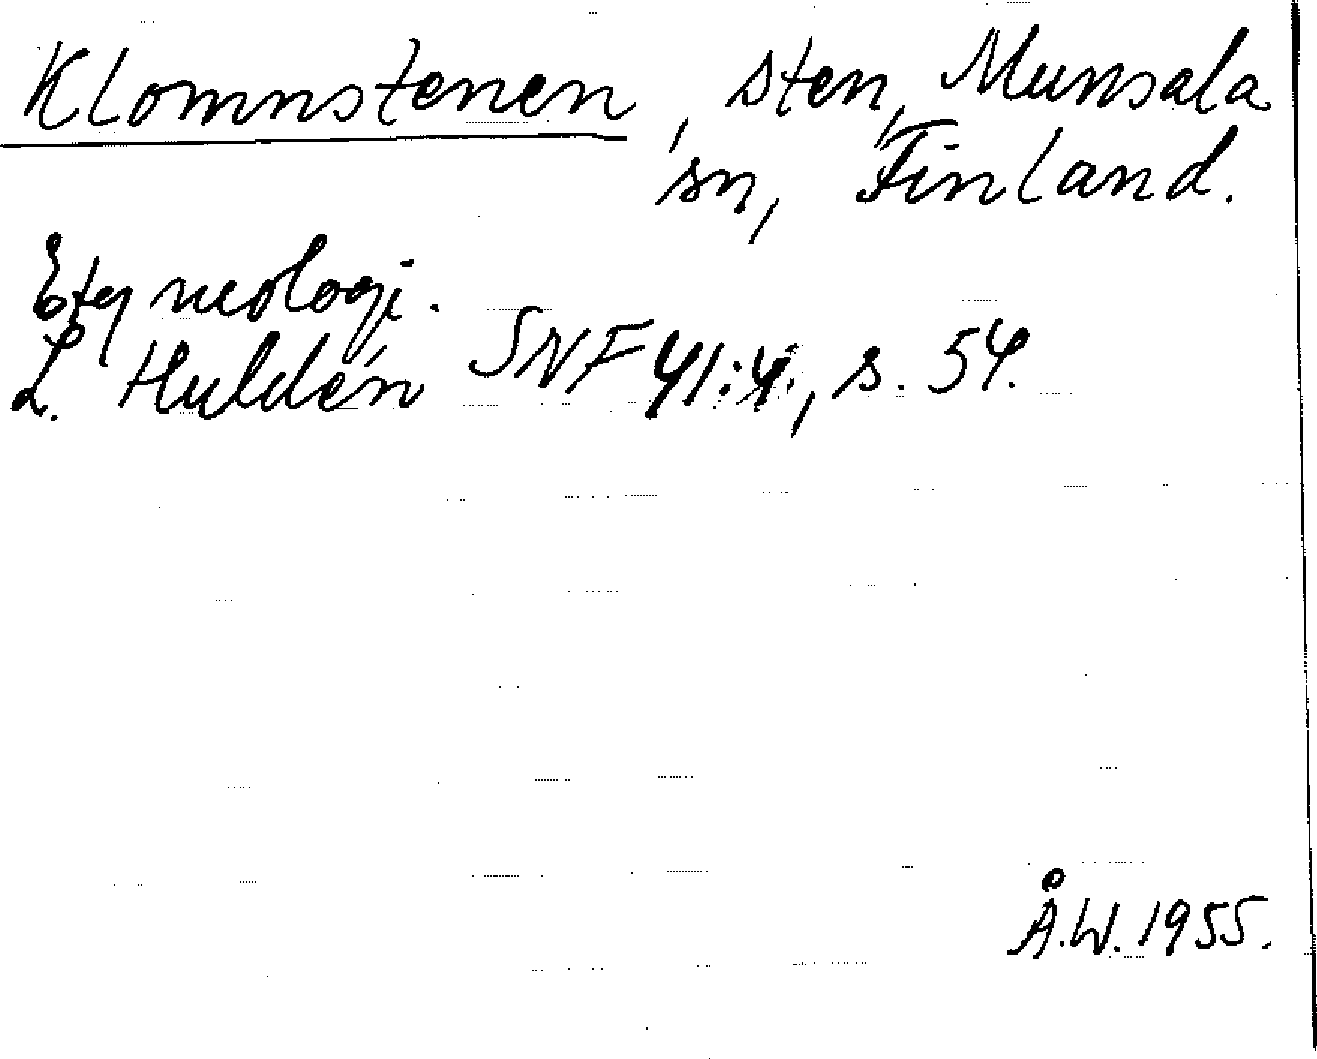 Klomnstenen, sten, Munsala
sn, Finland.
Etymologi.
L. Huldén SNF 41:4, s. 54.
Å.W. 1955.